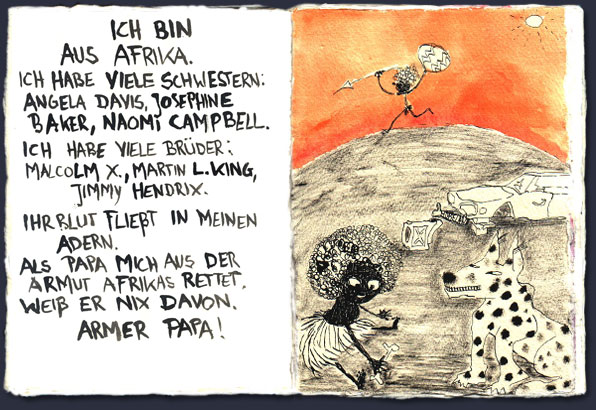 ICH BIN
AUS AFRIKA.
ICH HABE VIELE SCHWESTERN:
ANGELA DAVIS, JOSEPHINE
BAKER, NAOMI CAMPBELL.
ICH HABE VIELE BRÜDER:
MALCOLM X., MARTIN L. KING,
JIMMY HENDRIX.
IHR BLUT FLIEßT IN MEINEN
ADERN.
ALS PAPA MICH AUS DER
ARMUT AFRIKAS RETTET,
WEIß ER NIX DAVON.
ARMER PAPA!